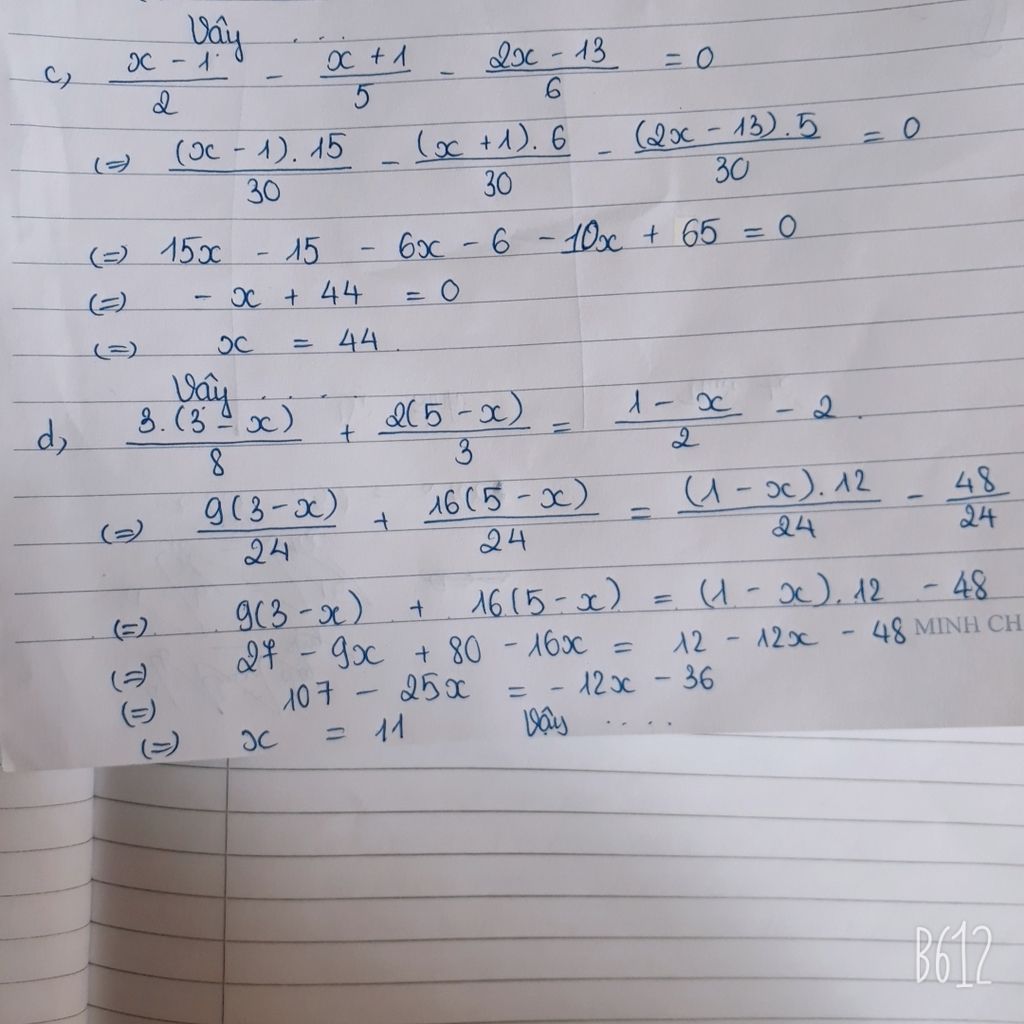 Vậy ....
c, (x - 1)/2 - (x + 1)/5 - (2x - 13)/6 = 0
(=) ((x - 1).15)/30 - ((x + 1).6)/30 - ((2x - 13).5)/30 = 0
(=) 15x - 15 - 6x - 6 - 10x + 65 = 0
(=) - x + 44 = 0
(=) x = 44.
Vậy .....
d, (3.(3 - x))/8 + (2(5 - x))/3 = (1 - x)/2 - 2.
(=) (9(3 - x))/24 + (16(5 - x))/24 = ((1 - x).12)/24 - 48/24
(=) 9(3 - x) + 16(5 - x) = (1 - x).12 - 48
(=) 27 - 9x + 80 - 16x = 12 - 12x - 48 MINH CH
(=) 107 - 25x = - 12x - 36
(=) x = 11 Vậy ....
B612